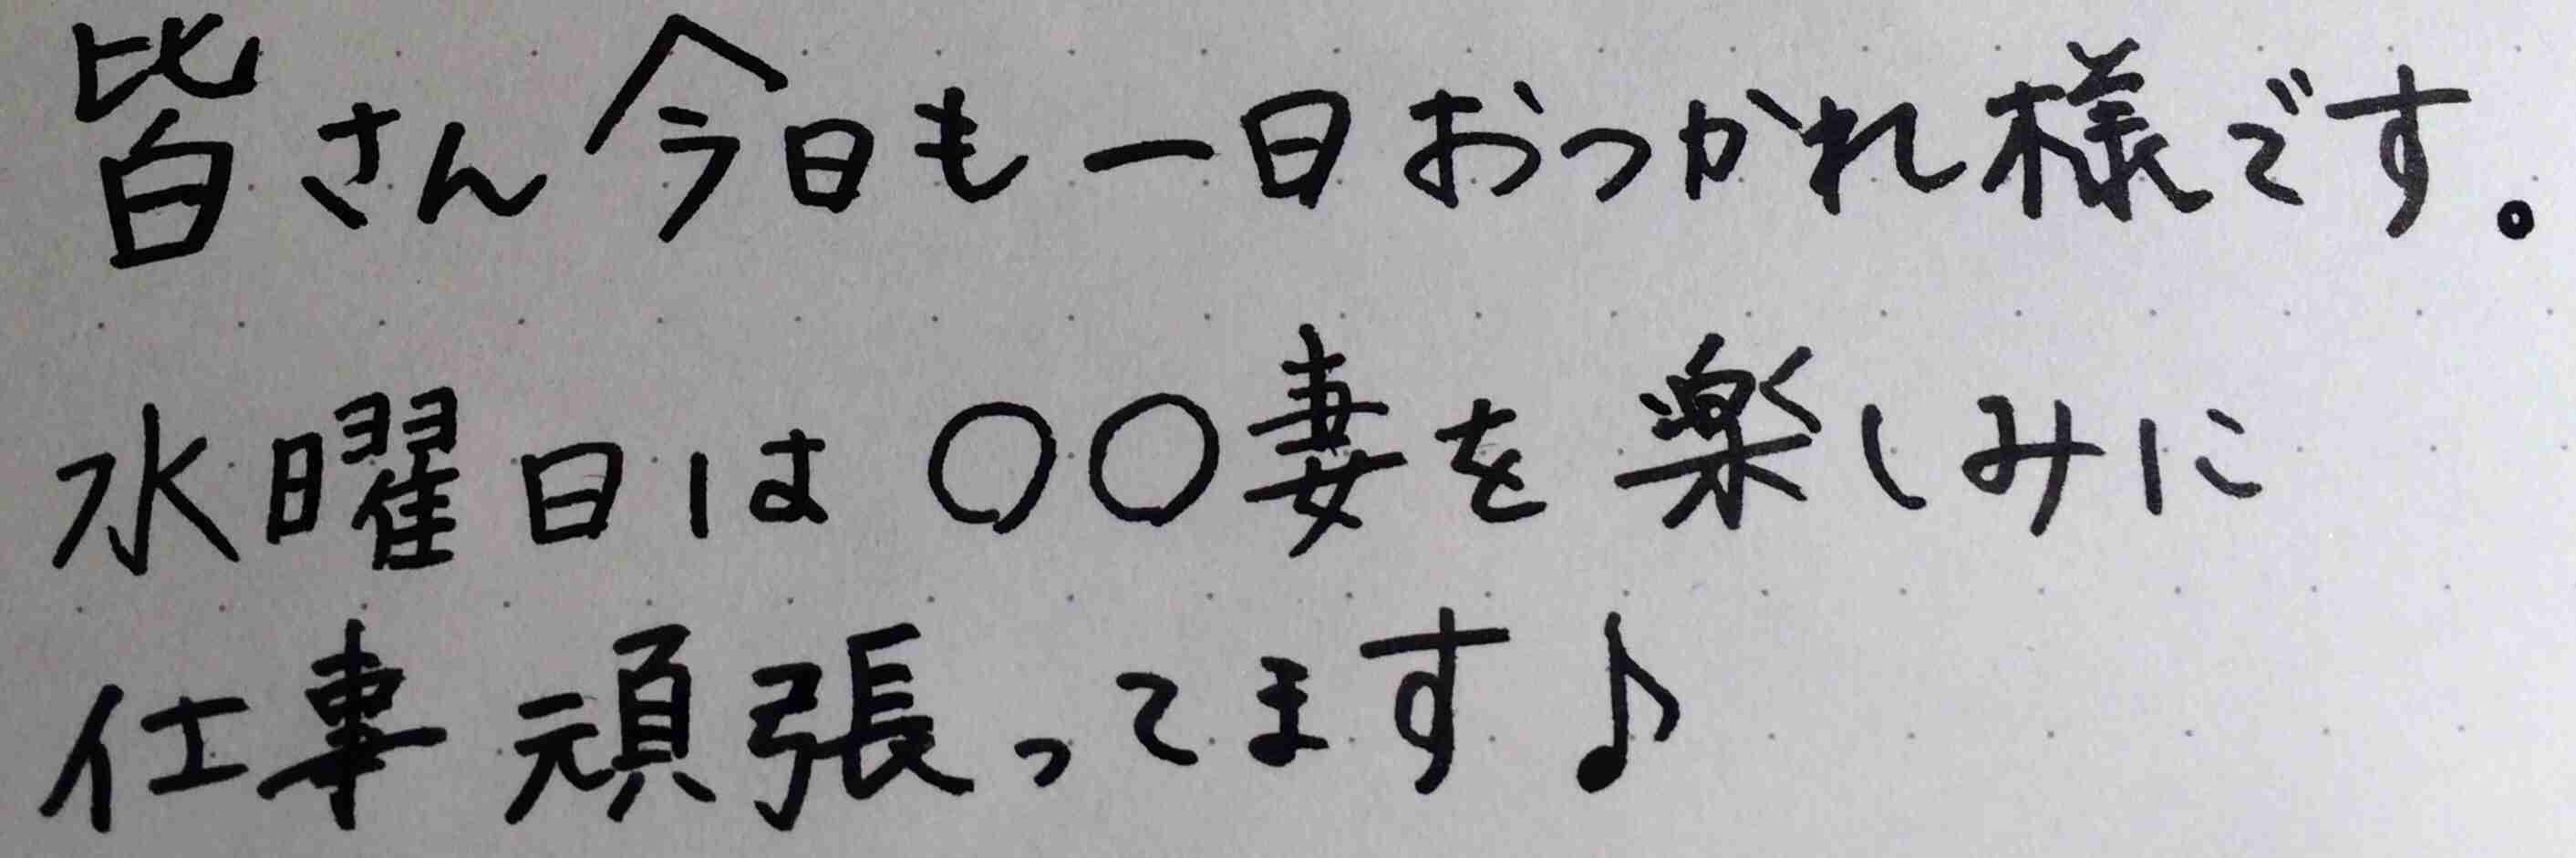 皆さん今日も一日おつかれ様です。
水曜日は○○妻を楽しみに
仕事頑張ってます♪